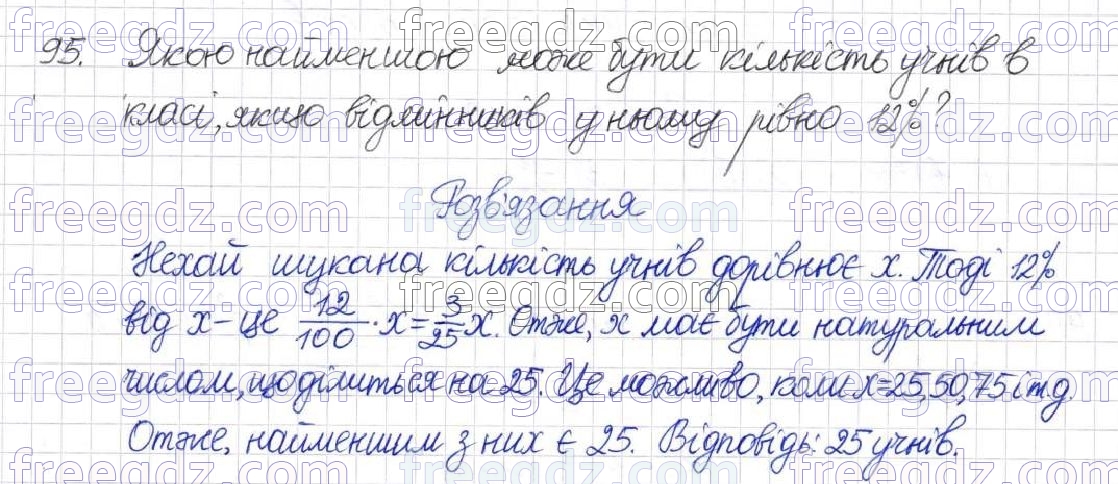 95. Якою найменшою може бути кількість учнів в
класі, якщо відмінників у ньому рівно 12%?
Розв'язання
Нехай шукана кількість учнів дорівнює x. Тоді 12%
від x – це 12/100 · x = 3/25 x. Отже, x має бути натуральним
числом, що ділиться на 25. Це можливо, коли x=25, 50, 75 і т.д.
Отже, найменшим з них є 25. Відповідь: 25 учнів.
freegdz.com